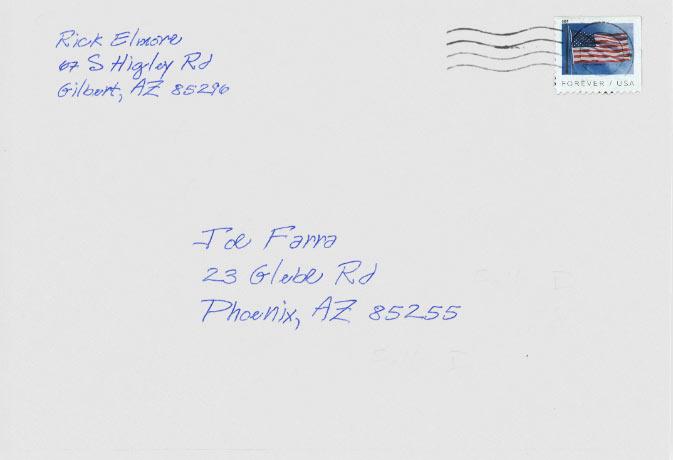 Rick Elmore
67 S Higley Rd
Gilbert, AZ 85296
FOREVER / USA
Joe Farra
23 Glebe Rd
Phoenix, AZ 85255